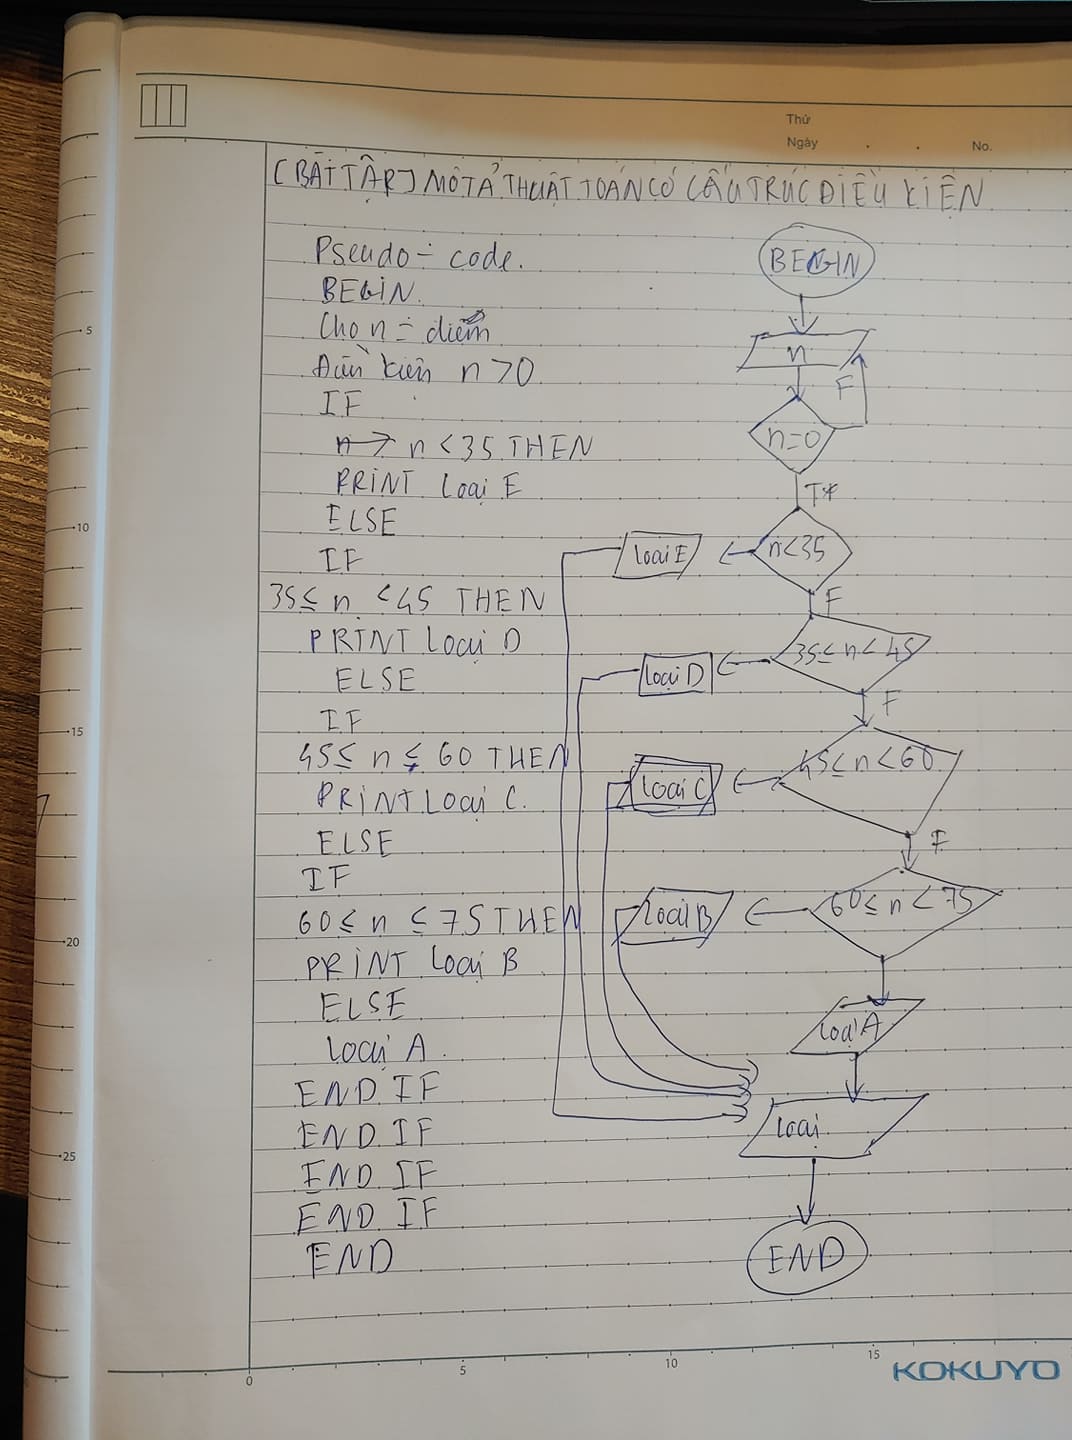 Thứ
Ngày
No.
[BÀI TẬP] MÔ TẢ THUẬT TOÁN CÓ CẤU TRÚC ĐIỀU KIỆN
Pseudo - code.
BEGIN
Cho n = điểm
Điều kiện n > 0
IF
n < 35 THEN
PRINT Loại E
ELSE
IF
35 ≤ n < 45 THEN
PRINT Loại D
ELSE
IF
45 ≤ n ≤ 60 THEN
PRINT Loại C.
ELSE
IF
60 ≤ n ≤ 75 THEN
PRINT Loại B
ELSE
Loại A
END IF
END IF
END IF
END IF
END
BEGIN
n
F
n=0
T
n<35
loại E
F
35 ≤ n < 45
loại D
F
45 ≤ n < 60
loại C
F
60 ≤ n < 75
loại B
loại A
loại
END
5
10
15
20
25
0
5
10
15
KOKUYO